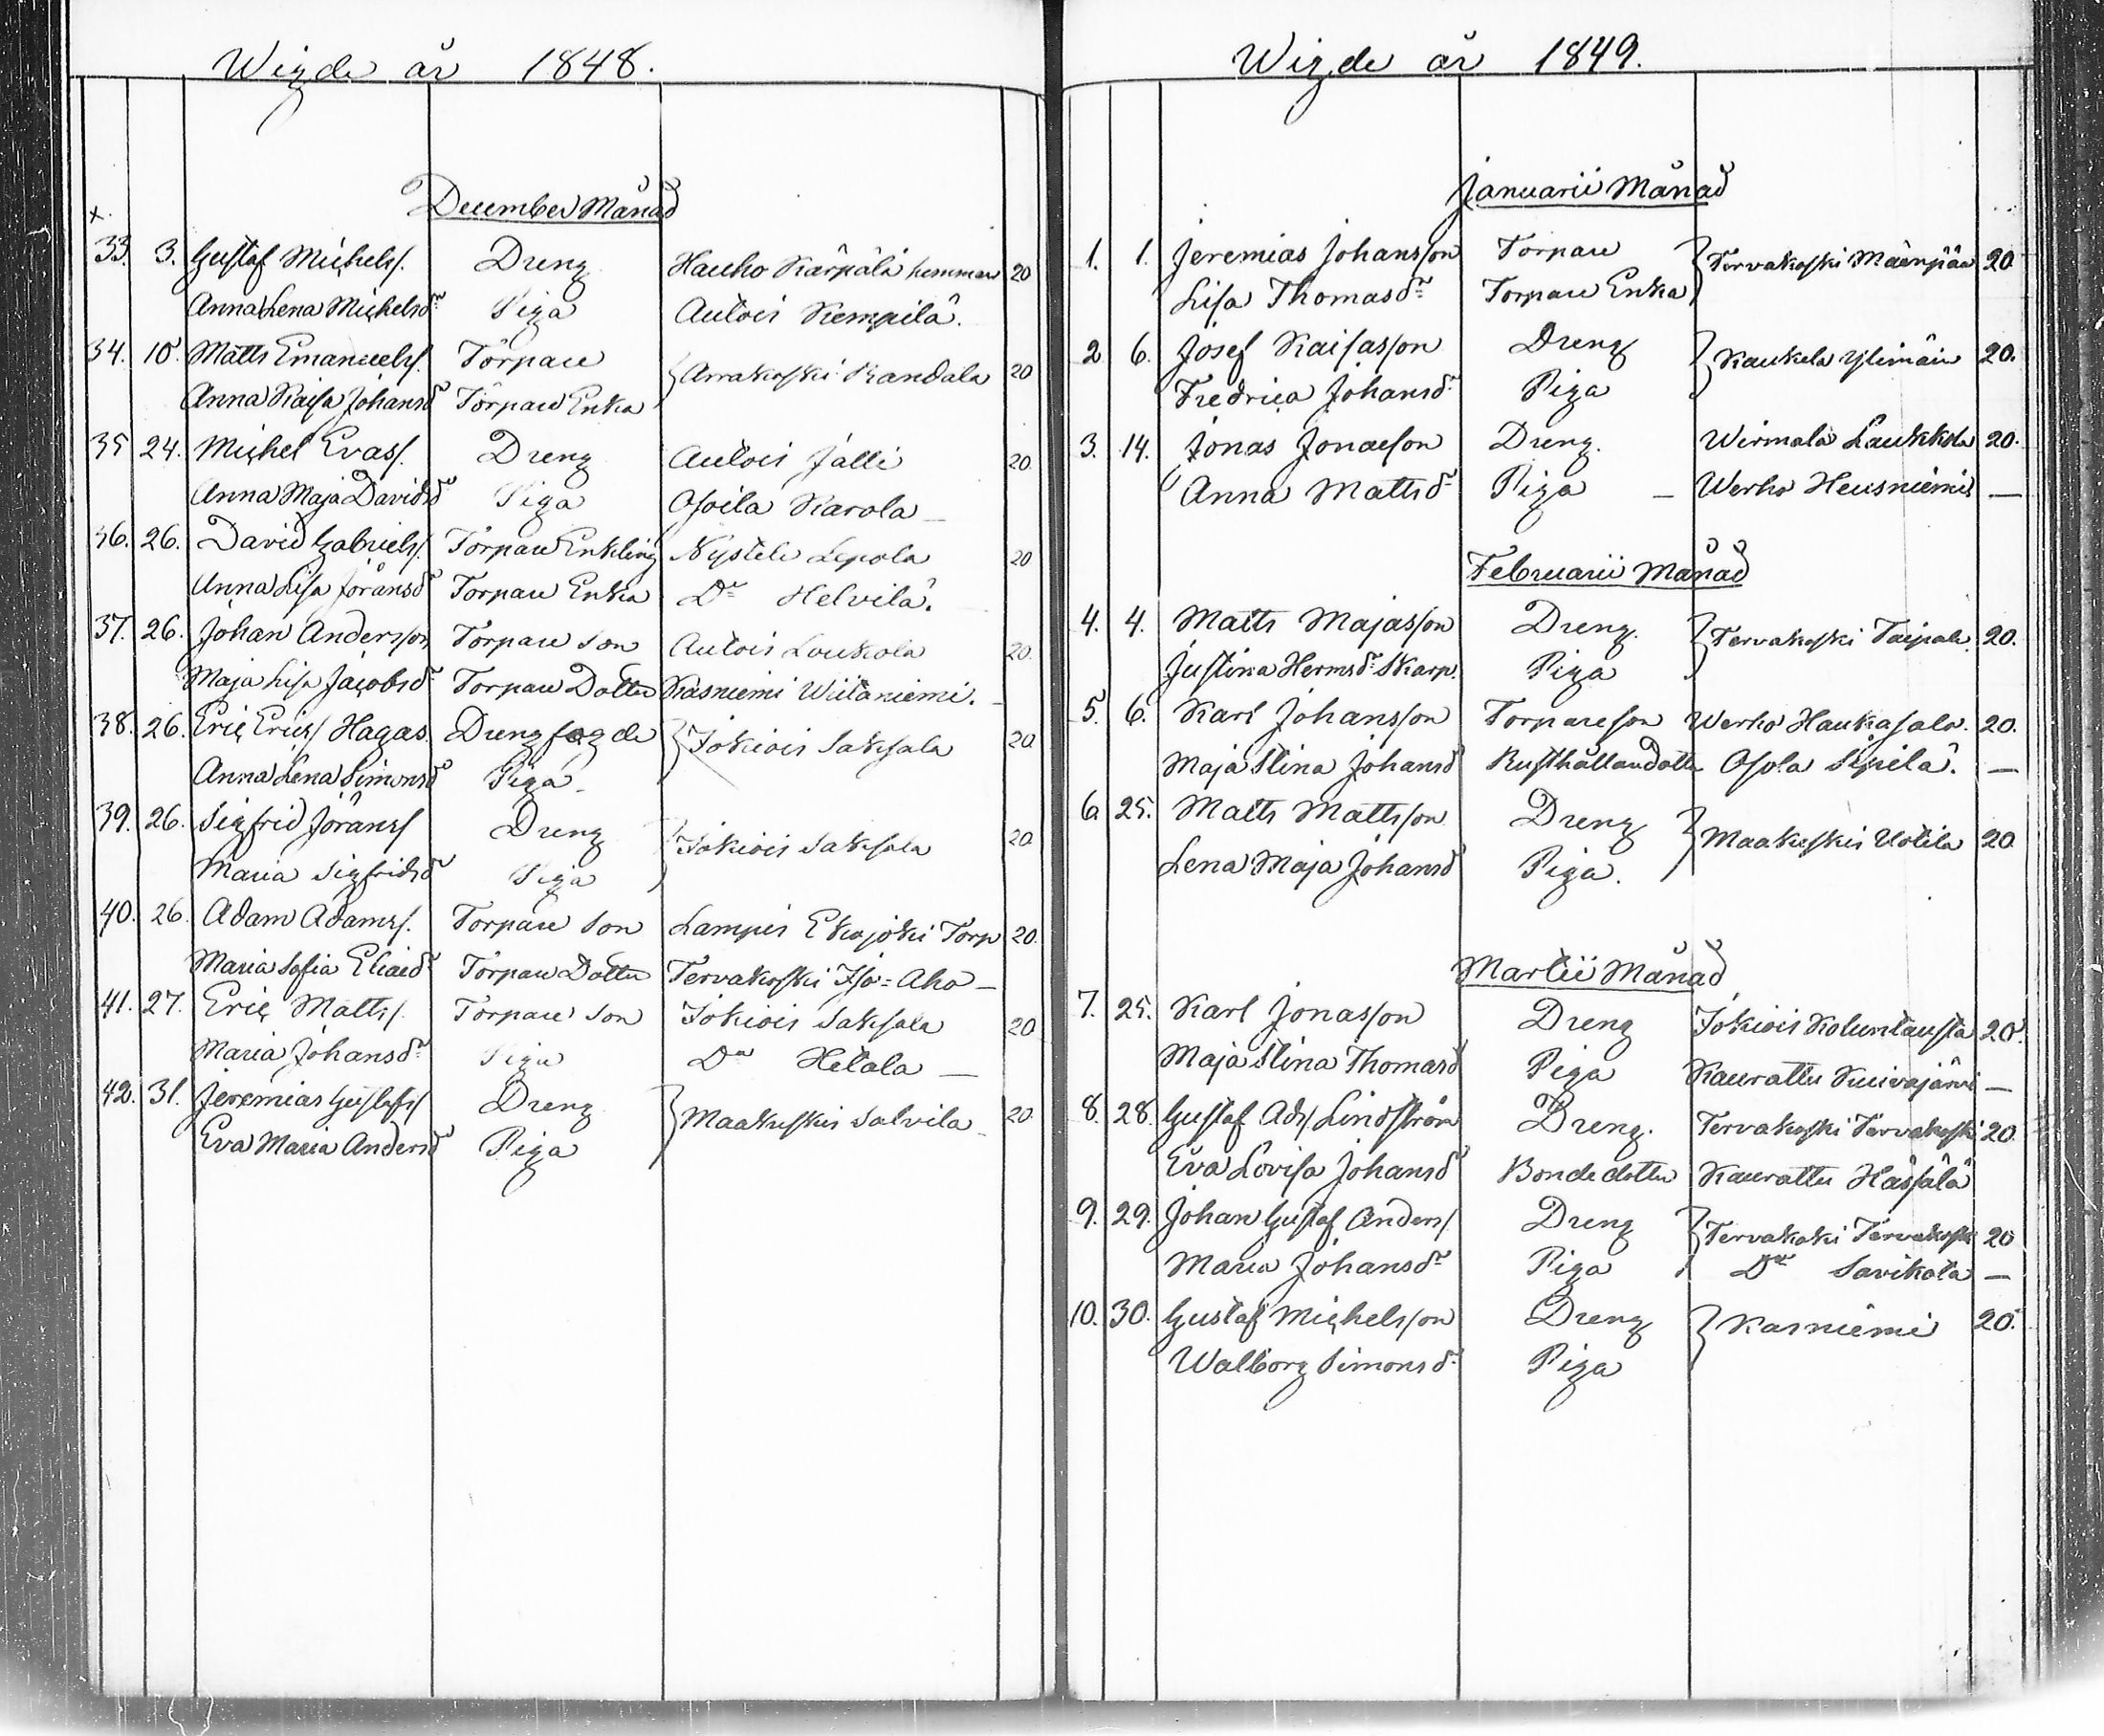 Wigde år 1848.
December Månad
x.
33. 3. Gustaf Michelss. Dreng Hauho Kärpälä hemman 20
Anna Lena Michelsdr Piga Aulois Kempilä.
34. 10. Matts Emanuelss. Torpare Arrakoski Randala 20
Anna Kaisa Johansdr Torpare Enka
35 24. Michel Evass. Dreng Autois Jälli 20
Anna Maja Davidsdr Piga Osoila Karola
36. 26. David Gabrielss. Torpare Enkling Nystele Lepola 20
Anna Lisa Jöransdr Torpare Enka Do Helvilä.
37. 26. Johan Andersson Torpare Son Autois Loukola 20.
Maja Lisa Jacobsdr Torpare Dotter Kasniemi Wiitaniemi.
38. 26. Eric Ericss Hagas. Drengfogde Jokiois Saksala 20.
Anna Lena Simonsdr Piga
39. 26. Sigfrid Jöranss Dreng Jokiois Saksala 20.
Maria Sigfridsdr Piga
40. 26. Adam Adamss. Torpare Son Lampis Torp 20.
Maria Sofia Eliaedr Torpare Dotter Tervakoski Iso=Aho
41. 27. Eric Mattss. Torpare Son Jokiois Saksala 20
Maria Johansdr Piga Do Hetala
42. 31. Jeremias Gustafss Dreng Maakeskis Salvila 20.
Eva Maria Andersdr Piga
Wigde år 1849.
Januarii Månad
1. 1. Jeremias Johansson Torpare Tervakoski Mäenpää 20.
Lisa Thomasdr Torpare Enka
2 6. Josef Kaisasson Dreng Kaukela Ylimäin 20.
Fredrica Johansdr Piga
3. 14. Jonas Jonaeson Dreng. Wirmala Laukkola 20.
Anna Mattsdr Piga Werho Heusniemis
Februarii Månad
4. 4. Matts Majasson Dreng. Tervakoski Taipale 20.
Justina Hermsdr Skarp. Piga
5. 6. Karl Johansson Torpareson Werho Haukasalo. 20.
Maja Stina Johansdr Rusthållaredotter Osola Sipilä.
6. 25. Matts Mattsson Dreng Maakeskis Uotila 20
Lena Maja Johansdr Piga.
Martii Månad
7. 25. Karl Jonasson Dreng Jokiois Koluntausta 20.
Maja Stina Thomasdr Piga Kaurattu Kuivajärvi
8. 28. Gustaf Ads. Lindström Dreng. Tervakoski Tervakoski 20.
Eva Lovisa Johansdr Bondedotter Kaurattu Hassälä
9. 29. Johan Gustaf Anderss. Dreng Tervakoski Tervakoski 20
Maria Johansdr Piga Do Savikota
10. 30. Gustaf Michelsson Dreng Kasniemi 20.
Walborg Simonsdr Piga